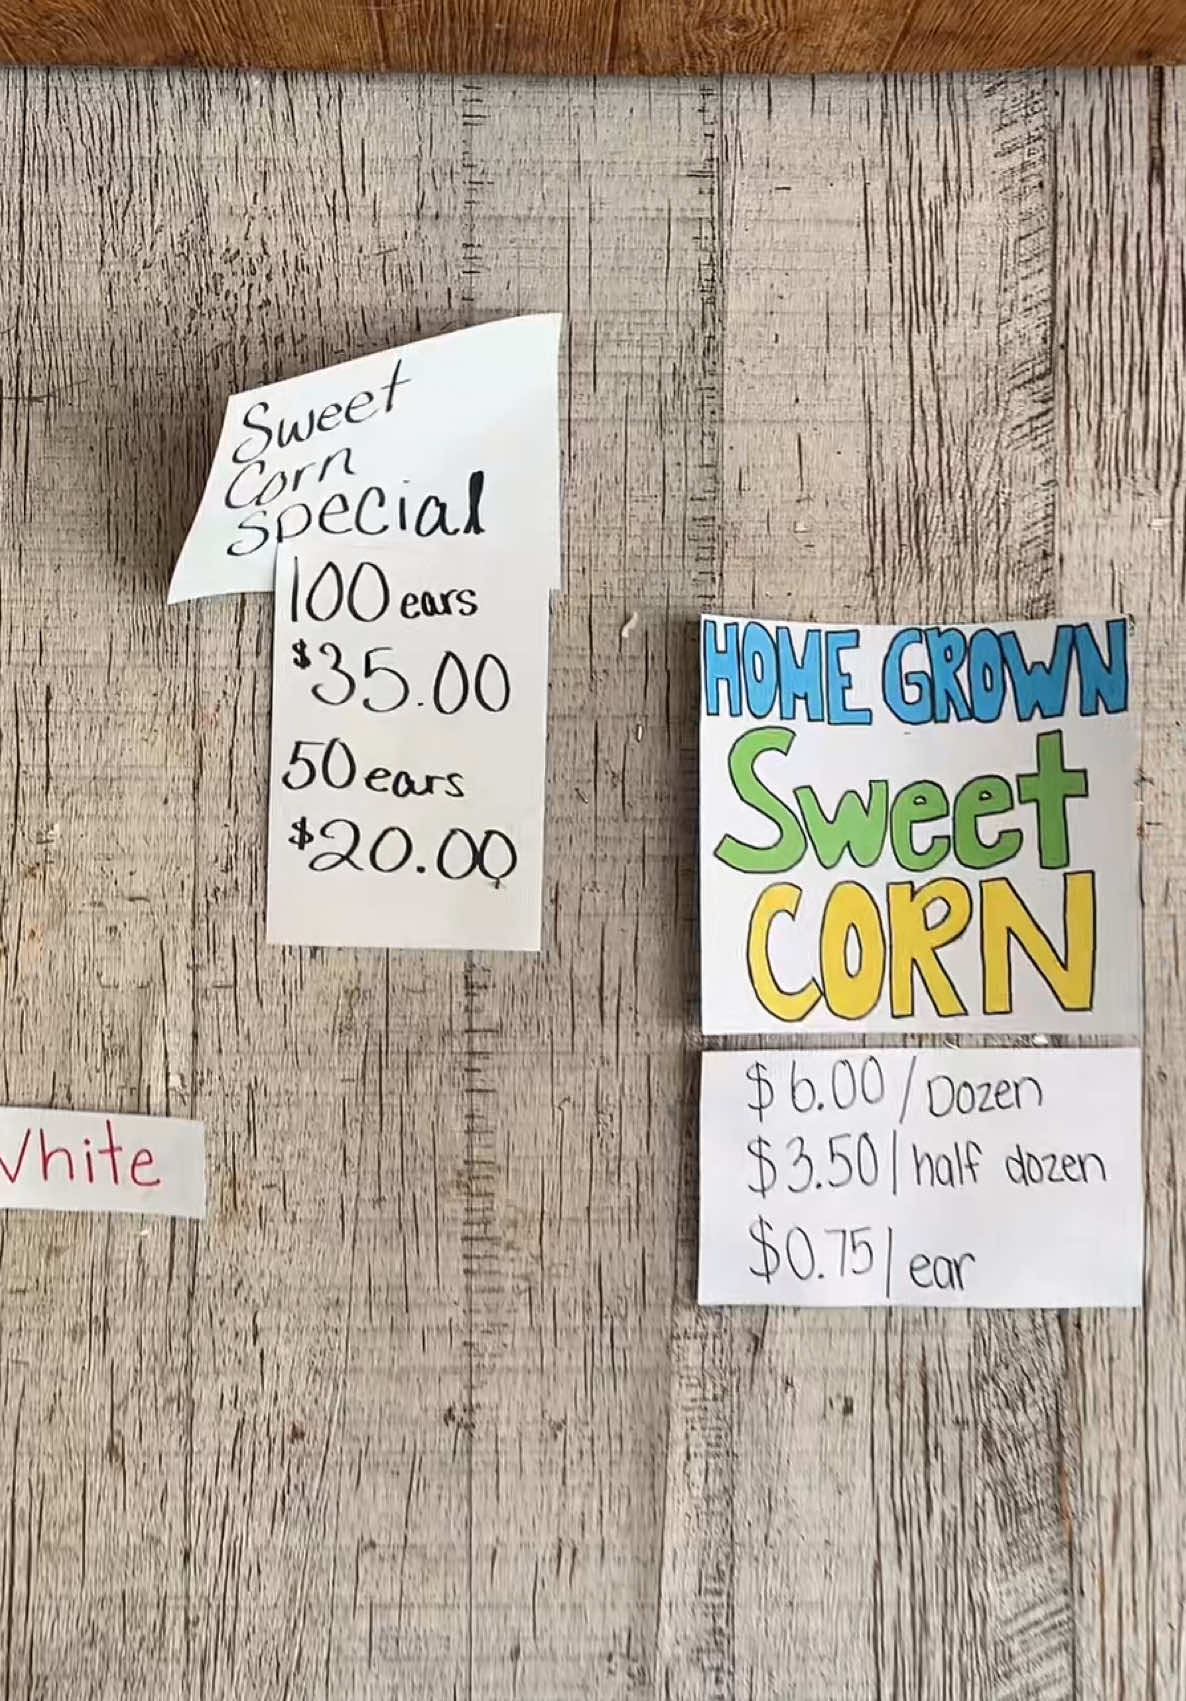 Sweet
Corn
special
100 ears
$35.00
50 ears
$20.00
HOME GROWN
Sweet
CORN
$6.00/Dozen
$3.50/half dozen
$0.75/ear
White